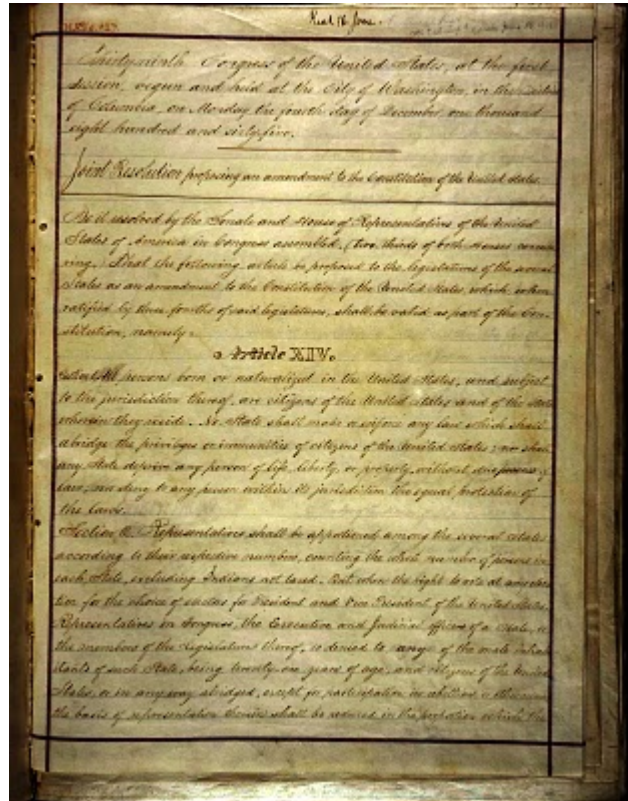 Thirty-ninth Congress of the United States, at the first
Session, begun and held at the City of Washington, in the District
of Columbia, on Monday the fourth day of December, one thousand
eight hundred and sixty-five.
Joint Resolution proposing an amendment to the Constitution of the United States.
Be it resolved by the Senate and House of Representatives of the United
States of America in Congress assembled, (two thirds of both Houses concur
ring,) That the following article be proposed to the legislatures of the several
States as an amendment to the Constitution of the United States, which, when
ratified by three fourths of said legislatures, shall be valid as part of the Con-
stitution, namely:
Article XIV.
Section 1. All persons born or naturalized in the United States, and subject
to the jurisdiction thereof, are citizens of the United States and of the State
wherein they reside. No State shall make or enforce any law which shall
abridge the privileges or immunities of citizens of the United States; nor shall
any State deprive any person of life, liberty, or property, without due process of
law; nor deny to any person within its jurisdiction the equal protection of
the laws.
Section 2. Representatives shall be apportioned among the several States
according to their respective numbers, counting the whole number of persons in
each State, excluding Indians not taxed. But when the right to vote at any elec
tion for the choice of electors for President and Vice President of the United States,
Representatives in Congress, the Executive and Judicial officers of a State, or
the members of the Legislature thereof, is denied to any of the male inhabi
tants of such State, being twenty-one years of age, and citizens of the United
States, or in any way abridged, except for participation in rebellion, or other crime,
the basis of representation therein shall be reduced in the proportion which the